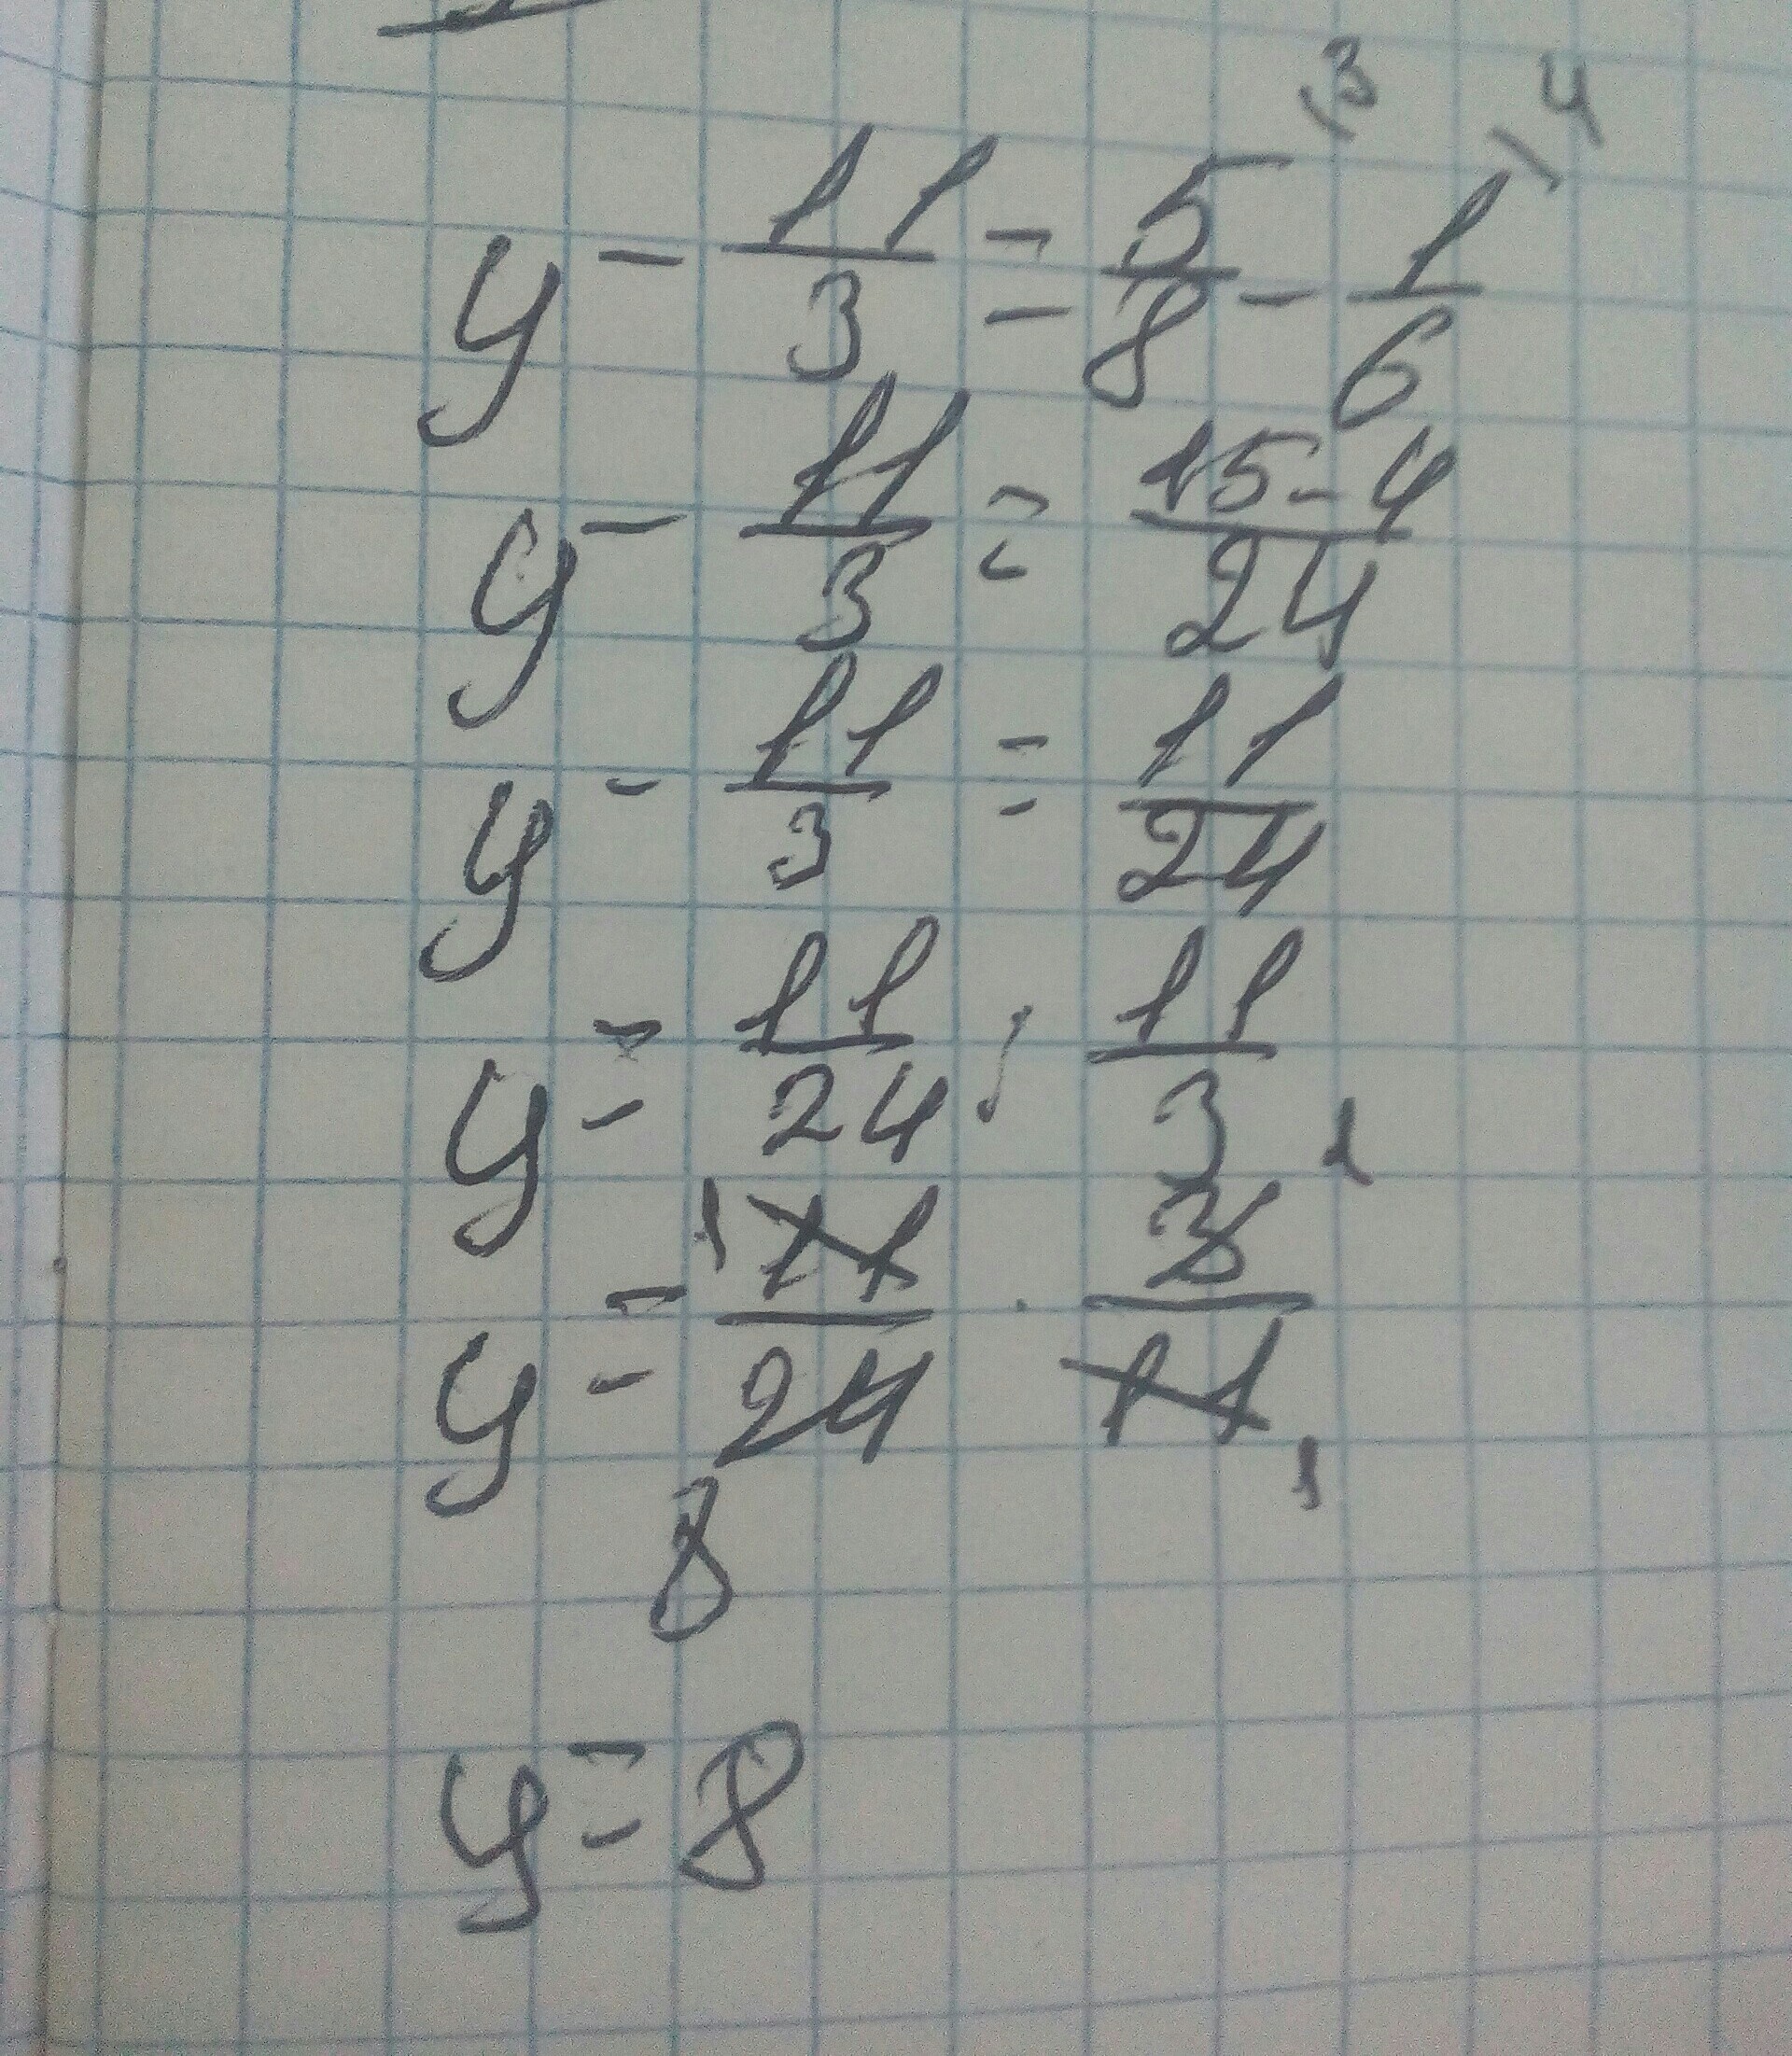 y - 11/3 = 5/8 \3 - 1/6 \4
y - 11/3 = 15-4/24
y - 11/3 = 11/24
y = 11/24 : 11/3
y = 1 11/24 · 3/11 1 1
8
y = 8